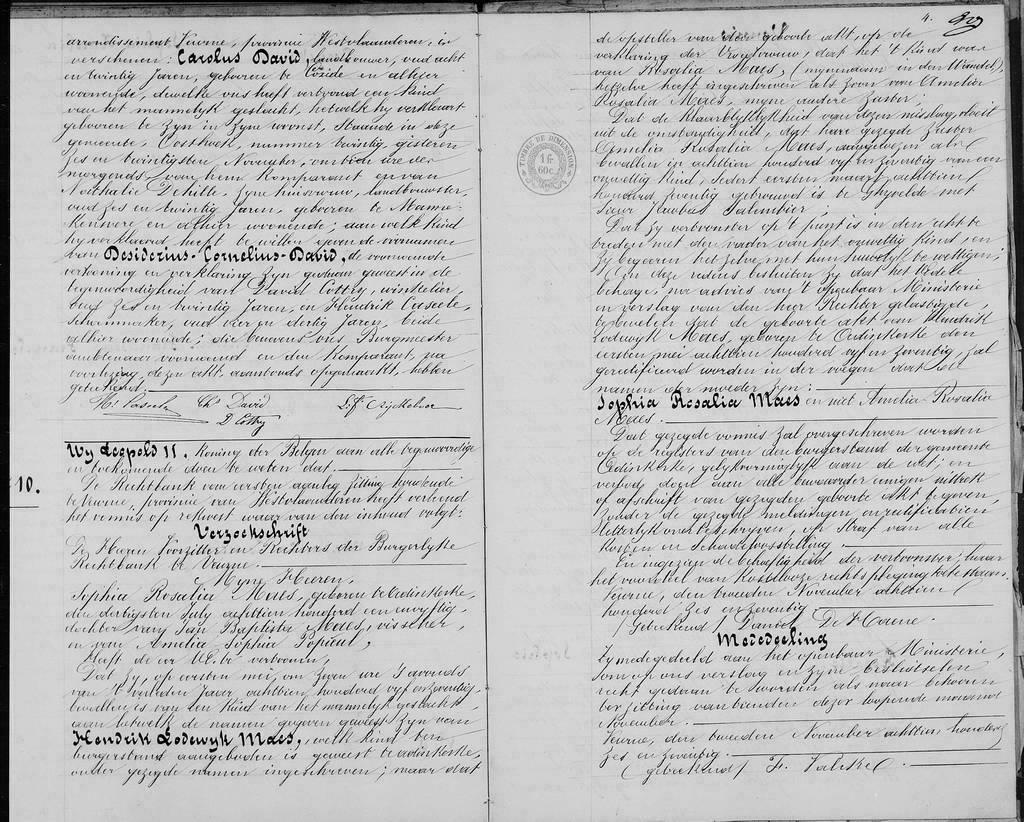 arrondissement Veurne, provincie Westvlaanderen, is
verschenen: Carolus David, landbouwer, oud acht
en twintig jaren, geboren te Coxide en alhier
woonende, dewelke ons heeft vertoond een kind
van het mannelyk geslacht, hetwelke hy verklaart
geboren te zyn in zyne woonst, staande in deze
gemeente, Oosthoek, nummer twintig, gisteren
zes en twintigsten November, om een ure des
morgends, van hem komparant en van
Nathalie Dehille, zyne huisvrouw, landbouwster,
oud zes en twintig jaren, geboren te Manne-
kensvere en alhier woonende; aan welk kind
hy verklaard heeft te willen geven de voornamen
van Desiderius-Cornelius-David, de voornoemde
vertooning en verklaring zyn gedaan geweest in de
tegenwoordigheid van David Cottry, winkelier,
oud zes en twintig jaren, en Hendrik Casseele,
schoenmaker, oud vier en dertig jaren, beide
alhier woonende; die benevens ons Burgmeester
ambtenaar voornoemd en den komparant, na
voorlezing dezen akt, aanstonds opgemaakt, hebben
geteekend.
Hi Casseele Chs David
D Cottry
10.
Wy Leopold II. Koning der Belgen aan alle tegenwoordige
en toekomende doen te weten dat.
De Rechtbank van eersten aanleg zitting houdende
te Veurne, provincie van Westvlaanderen heeft verleend
het vonnis op rekwest waar van den inhoud volgt:
Verzoekschrift
De Heeren Voorzitter en Rechters der Burgerlyke
Rechtbank te Veurne.
Myne Heeren,
Sophia Rosalia Maes, geboren te Adinkerke,
den dertigsten July achttien honderd een en vyftig,
dochter van Jan Baptiste Maes, visscher,
en van Amelia Sophia Popieul,
Heeft de eer UEd. te vertoonen,
Dat zy, op eersten mei, om zeven ure 's avonds
van 't verleden jaar achttien honderd vyf en zeventig
bevallen is van een kind van het mannelyk geslacht,
aan hetwelk de namen gegeven geweest zyn van
Hendrik Lodewyk Maes, welk kind ten
burgerstand aangeboden is geweest te adinkerke,
onder gezegde namen ingeschreven; maar dat
4.
de opsteller van de geboorte akt, op de
verklaring der Vroedvrouw, dat het 't kind was
van Rosalia Maes, (mynendaem in den Wandel),
hetzelve heeft ingeschreven als zoon van Amelia
Rosalia Maes, myne andere Zuster;
Dat de klaarblyklykheid van dezen misslag, vloeit
uit de omstandigheid, dat hare gezegde Zuster
Amelia Rosalia Maes, aangewezen als
bevallen in achttien honderd vyf en zeventig van een
onwettig kind, sedert eersten maart achttien
honderd zeventig getrouwd is te Ghyvelde met
sieur Jacobus Salembier;
Dat zy vertoonster op 't punt is in den echt te
treden met den vader van het onwettig kind, en
zy begeeren hetzelve met hun huwelyk te wettigen;
Om deze redens besluiten zy dat het UEdele
behage, na advies van 't openbaar Ministerie
en verslag van den heer Rechter gelastigde,
te bevelen dat de geboorte akt van Hendrik
Lodewyk Maes, geboren te Adinkerke den
eersten mei achttien honderd vyf en zeventig, zal
gerectifieerd worden in der voegen dat de
namen der moeder zyn:
Sophia Rosalia Maes en niet Amelia Rosalia
Maes.
Dat gezegde vonnis zal overgeschreven worden
op de registers van den burgerstand der gemeente
Adinkerke, gelykvormiglyk aan de wet; en
verbod doen aan alle bewaarder eenigen uittrek
of afschrift van gezegden geboorte akt te geven,
zonder de gezegde meldingen en rectificatien
letterlyk over te schryven, op straf van alle
kosten en Schadeloosstelling
En aangezien de behoeftigheid der vertoonster, haar
het voordeel van kostelooze rechtspleging toe te staan.
Veurne, den tweeden November achttien
honderd zes en zeventig
(Geteekend) Daniel De Haene.
Mededeeling
Zy medegedeeld aan het openbaar Ministerie,
om op ons verslag en zyne besluitselen
recht gedaan te worden als naar behooren
ter zitting van tienden dezer loopende maand
November.
Veurne, den tweeden November achttien honderd
zes en zeventig.
(geteekend)
TIMBRE DE DIMENSION
1 fr
60c.